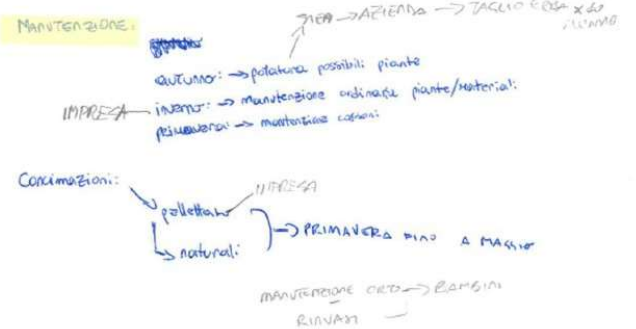 MANUTENZIONE:
AZIENDA → TAGLIO ERBA
autunno: → potatura possibili piante
IMPRESA
inverno: → manutenzione ordinaria piante/materiali
primavera → manutenzione
Concimazioni:
IMPRESA
pellettato
naturali
→ PRIMAVERA FINO A MAGGIO
MANUTENZIONE ORTO → BAMBINI
RINVASI